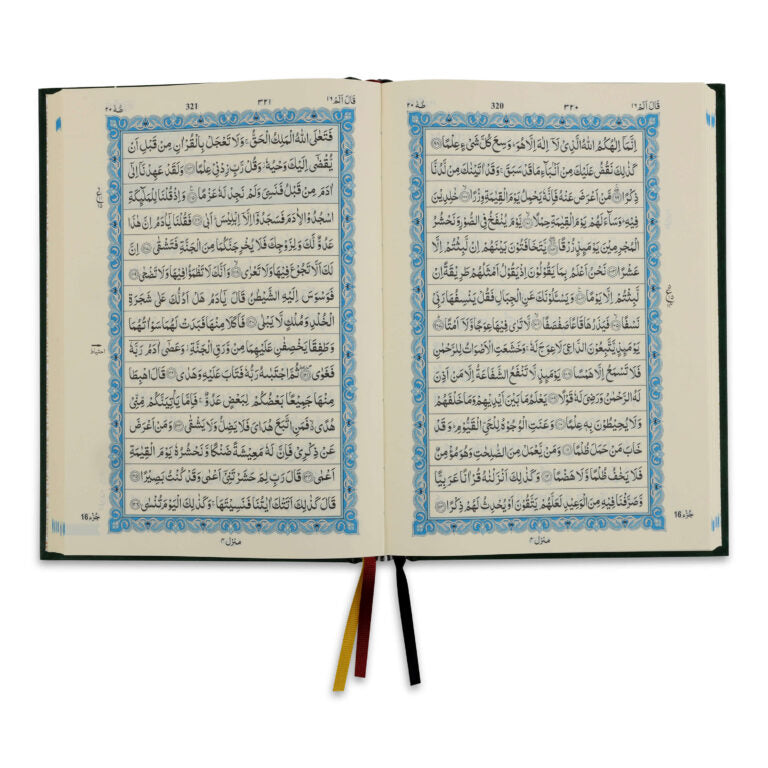 قَالَ اَلَمْ ١٦ ٣٢٠ 320 طٰهٰ ٢٠
اِنَّمَاۤ اِلٰهُكُمُ اللّٰهُ الَّذِیْ لَاۤ اِلٰهَ اِلَّا هُوَؕ وَسِعَ كُلَّ شَیْءٍ عِلْمًا ﴿٩٨﴾
كَذٰلِكَ نَقُصُّ عَلَیْكَ مِنْ اَنْۢبَآءِ مَا قَدْ سَبَقَۚ وَقَدْ اٰتَیْنٰكَ مِنْ لَّدُنَّا
ذِكْرًا ﴿٩٩﴾ مَنْ اَعْرَضَ عَنْهُ فَاِنَّهٗ یَحْمِلُ یَوْمَ الْقِیٰمَةِ وِزْرًا ﴿١٠٠﴾ خٰلِدِیْنَ
فِیْهِؕ وَسَآءَ لَهُمْ یَوْمَ الْقِیٰمَةِ حِمْلًا ﴿١٠١﴾ یَّوْمَ یُنْفَخُ فِی الصُّوْرِ وَنَحْشُرُ
الْمُجْرِمِیْنَ یَوْمَىِٕذٍ زُرْقًا ﴿١٠٢﴾ یَّتَخَافَتُوْنَ بَیْنَهُمْ اِنْ لَّبِثْتُمْ اِلَّا
عَشْرًا ﴿١٠٣﴾ نَحْنُ اَعْلَمُ بِمَا یَقُوْلُوْنَ اِذْ یَقُوْلُ اَمْثَلُهُمْ طَرِیْقَةً اِنْ
لَّبِثْتُمْ اِلَّا یَوْمًا ﴿١٠٤﴾ وَیَسْـَٔلُوْنَكَ عَنِ الْجِبَالِ فَقُلْ یَنْسِفُهَا رَبِّیْ
نَسْفًا ﴿١٠٥﴾ فَیَذَرُهَا قَاعًا صَفْصَفًا ﴿١٠٦﴾ لَّا تَرٰی فِیْهَا عِوَجًا وَّلَاۤ اَمْتًا ﴿١٠٧﴾
یَوْمَىِٕذٍ یَّتَّبِعُوْنَ الدَّاعِیَ لَا عِوَجَ لَهٗۚ وَخَشَعَتِ الْاَصْوَاتُ لِلرَّحْمٰنِ
فَلَا تَسْمَعُ اِلَّا هَمْسًا ﴿١٠٨﴾ یَوْمَىِٕذٍ لَّا تَنْفَعُ الشَّفَاعَةُ اِلَّا مَنْ اَذِنَ
لَهُ الرَّحْمٰنُ وَرَضِیَ لَهٗ قَوْلًا ﴿١٠٩﴾ یَعْلَمُ مَا بَیْنَ اَیْدِیْهِمْ وَمَا خَلْفَهُمْ
وَلَا یُحِیْطُوْنَ بِهٖ عِلْمًا ﴿١١٠﴾ وَعَنَتِ الْوُجُوْهُ لِلْحَیِّ الْقَیُّوْمِؕ وَقَدْ
خَابَ مَنْ حَمَلَ ظُلْمًا ﴿١١١﴾ وَمَنْ یَّعْمَلْ مِنَ الصّٰلِحٰتِ وَهُوَ مُؤْمِنٌ
فَلَا یَخٰفُ ظُلْمًا وَّلَا هَضْمًا ﴿١١٢﴾ وَكَذٰلِكَ اَنْزَلْنٰهُ قُرْاٰنًا عَرَبِیًّا
وَّصَرَّفْنَا فِیْهِ مِنَ الْوَعِیْدِ لَعَلَّهُمْ یَتَّقُوْنَ اَوْ یُحْدِثُ لَهُمْ ذِكْرًا ﴿١١٣﴾
جُزْء 16
منزل ٤
قَالَ اَلَمْ ١٦ ٣٢١ 321 طٰهٰ ٢٠
فَتَعٰلَی اللّٰهُ الْمَلِكُ الْحَقُّۚ وَلَا تَعْجَلْ بِالْقُرْاٰنِ مِنْ قَبْلِ اَنْ
یُّقْضٰۤی اِلَیْكَ وَحْیُهٗؗ وَقُلْ رَّبِّ زِدْنِیْ عِلْمًا ﴿١١٤﴾ وَلَقَدْ عَهِدْنَاۤ اِلٰۤی
اٰدَمَ مِنْ قَبْلُ فَنَسِیَ وَلَمْ نَجِدْ لَهٗ عَزْمًا ﴿١١٥﴾ وَاِذْ قُلْنَا لِلْمَلٰٓىِٕكَةِ
اسْجُدُوْا لِاٰدَمَ فَسَجَدُوْۤا اِلَّاۤ اِبْلِیْسَؕ اَبٰی ﴿١١٦﴾ فَقُلْنَا یٰۤاٰدَمُ اِنَّ هٰذَا
عَدُوٌّ لَّكَ وَلِزَوْجِكَ فَلَا یُخْرِجَنَّكُمَا مِنَ الْجَنَّةِ فَتَشْقٰی ﴿١١٧﴾ اِنَّ
لَكَ اَلَّا تَجُوْعَ فِیْهَا وَلَا تَعْرٰی ﴿١١٨﴾ وَاَنَّكَ لَا تَظْمَؤُا فِیْهَا وَلَا تَضْحٰی ﴿١١٩﴾
فَوَسْوَسَ اِلَیْهِ الشَّیْطٰنُ قَالَ یٰۤاٰدَمُ هَلْ اَدُلُّكَ عَلٰی شَجَرَةِ
الْخُلْدِ وَمُلْكٍ لَّا یَبْلٰی ﴿١٢٠﴾ فَاَكَلَا مِنْهَا فَبَدَتْ لَهُمَا سَوْاٰتُهُمَا
وَطَفِقَا یَخْصِفٰنِ عَلَیْهِمَا مِنْ وَّرَقِ الْجَنَّةِؗ وَعَصٰۤی اٰدَمُ رَبَّهٗ
فَغَوٰی ﴿١٢١﴾ ثُمَّ اجْتَبٰىهُ رَبُّهٗ فَتَابَ عَلَیْهِ وَهَدٰی ﴿١٢٢﴾ قَالَ اهْبِطَا
مِنْهَا جَمِیْعًۢا بَعْضُكُمْ لِبَعْضٍ عَدُوٌّۚ فَاِمَّا یَاْتِیَنَّكُمْ مِّنِّیْ
هُدًی فَمَنِ اتَّبَعَ هُدَایَ فَلَا یَضِلُّ وَلَا یَشْقٰی ﴿١٢٣﴾ وَمَنْ اَعْرَضَ
عَنْ ذِكْرِیْ فَاِنَّ لَهٗ مَعِیْشَةً ضَنْكًا وَّنَحْشُرُهٗ یَوْمَ الْقِیٰمَةِ
اَعْمٰی ﴿١٢٤﴾ قَالَ رَبِّ لِمَ حَشَرْتَنِیْۤ اَعْمٰی وَقَدْ كُنْتُ بَصِیْرًا ﴿١٢٥﴾
قَالَ كَذٰلِكَ اَتَتْكَ اٰیٰتُنَا فَنَسِیْتَهَاۚ وَكَذٰلِكَ الْیَوْمَ تُنْسٰی ﴿١٢٦﴾
احتياط
جُزْء 16
منزل ٤